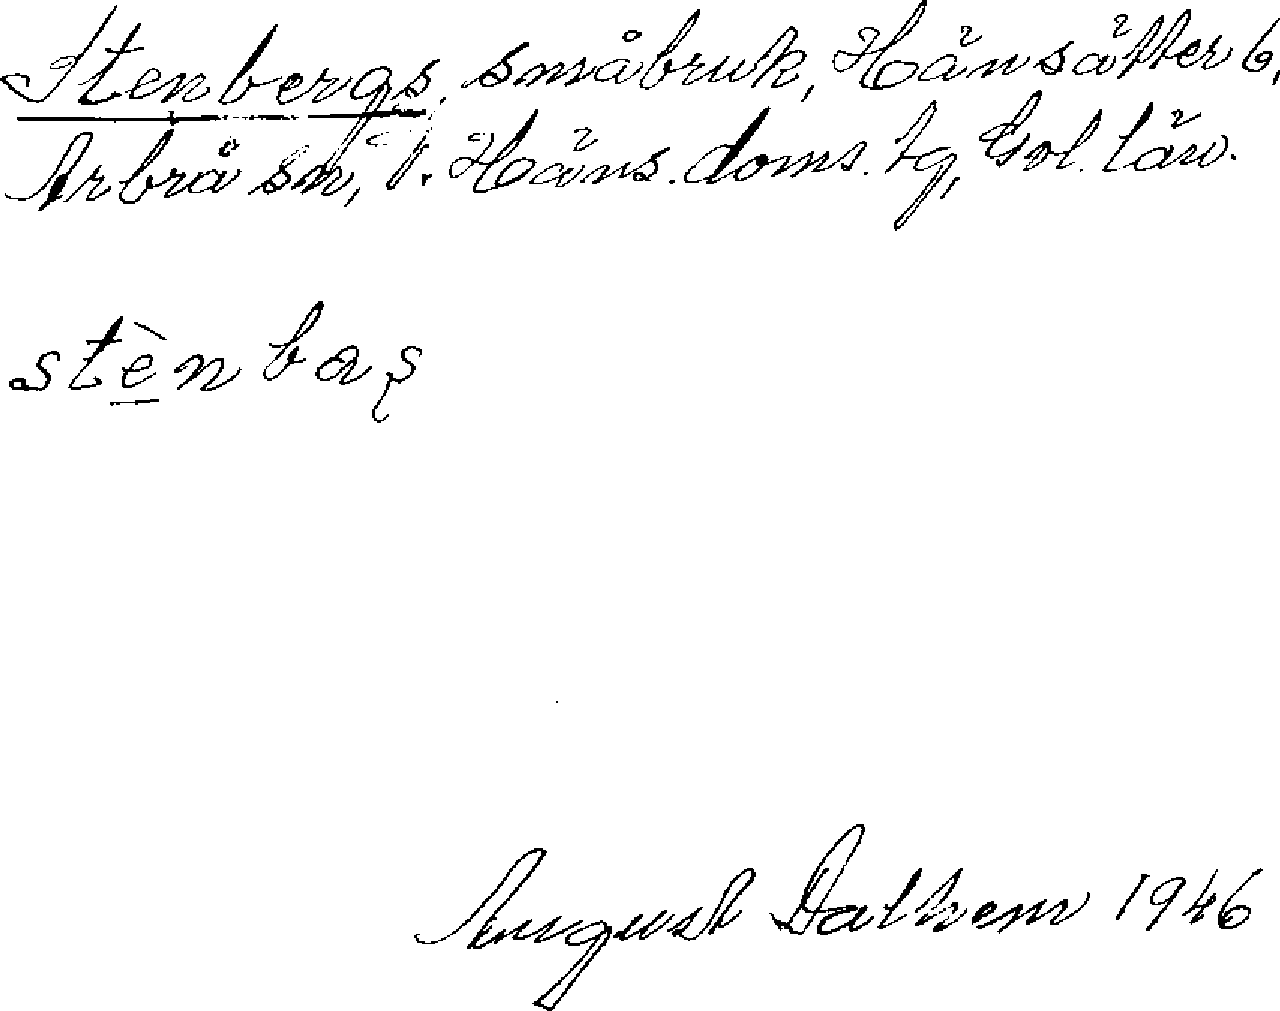 Stenbergs, småbruk, Hänsätter 6,
Arbrå sn, V. Häns. doms. tg, Gvl. län.
stèn baş
August Dalhem 1946